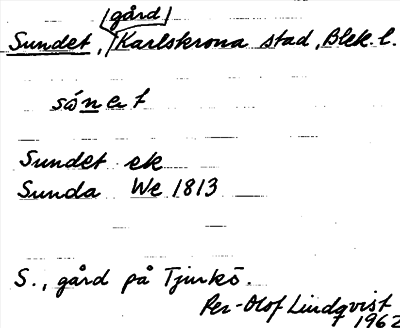 gård
Sundet, Karlskrona stad, Blek. l.
sónet
Sundet ek
Sunda We 1813
S., gård på Tjurkö.
Per-Olof Lindqvist
1962